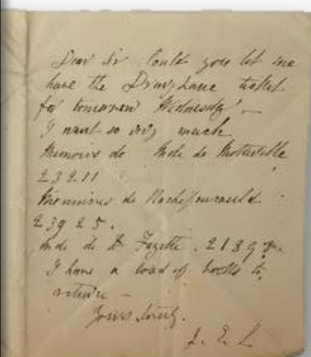 Dear Sir Could you let me
have the Drury Lane ticket
for tomorrow Wednesday –
I want so very much
Memoirs de Mde de Motteville
23211
Memoires de Rochefoucauld
23925.
Mde de la Fayette. 2139
I have a load of books to
return –
Yours truly.
L. E. L